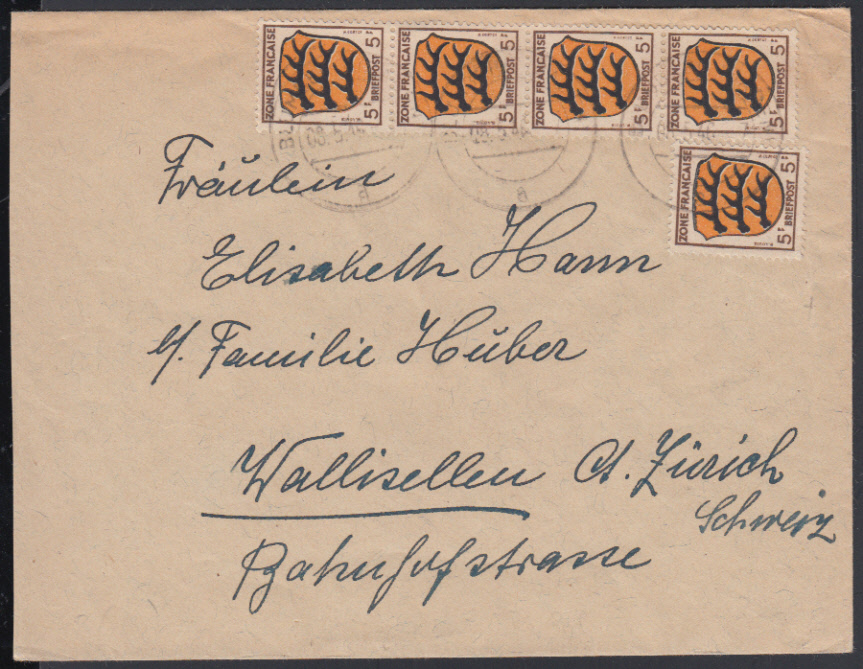 ZONE FRANÇAISE 5 F BRIEFPOST 5
ZONE FRANÇAISE 5 F BRIEFPOST 5
ZONE FRANÇAISE 5 F BRIEFPOST 5
ZONE FRANÇAISE 5 F BRIEFPOST 5
ZONE FRANÇAISE 5 F BRIEFPOST 5
08.5.46
a
a
Fräulein
Elisabeth Hann
b/. Familie Huber
Wallisellen Ct. Zürich
Schweiz
Bahnhofstrasse